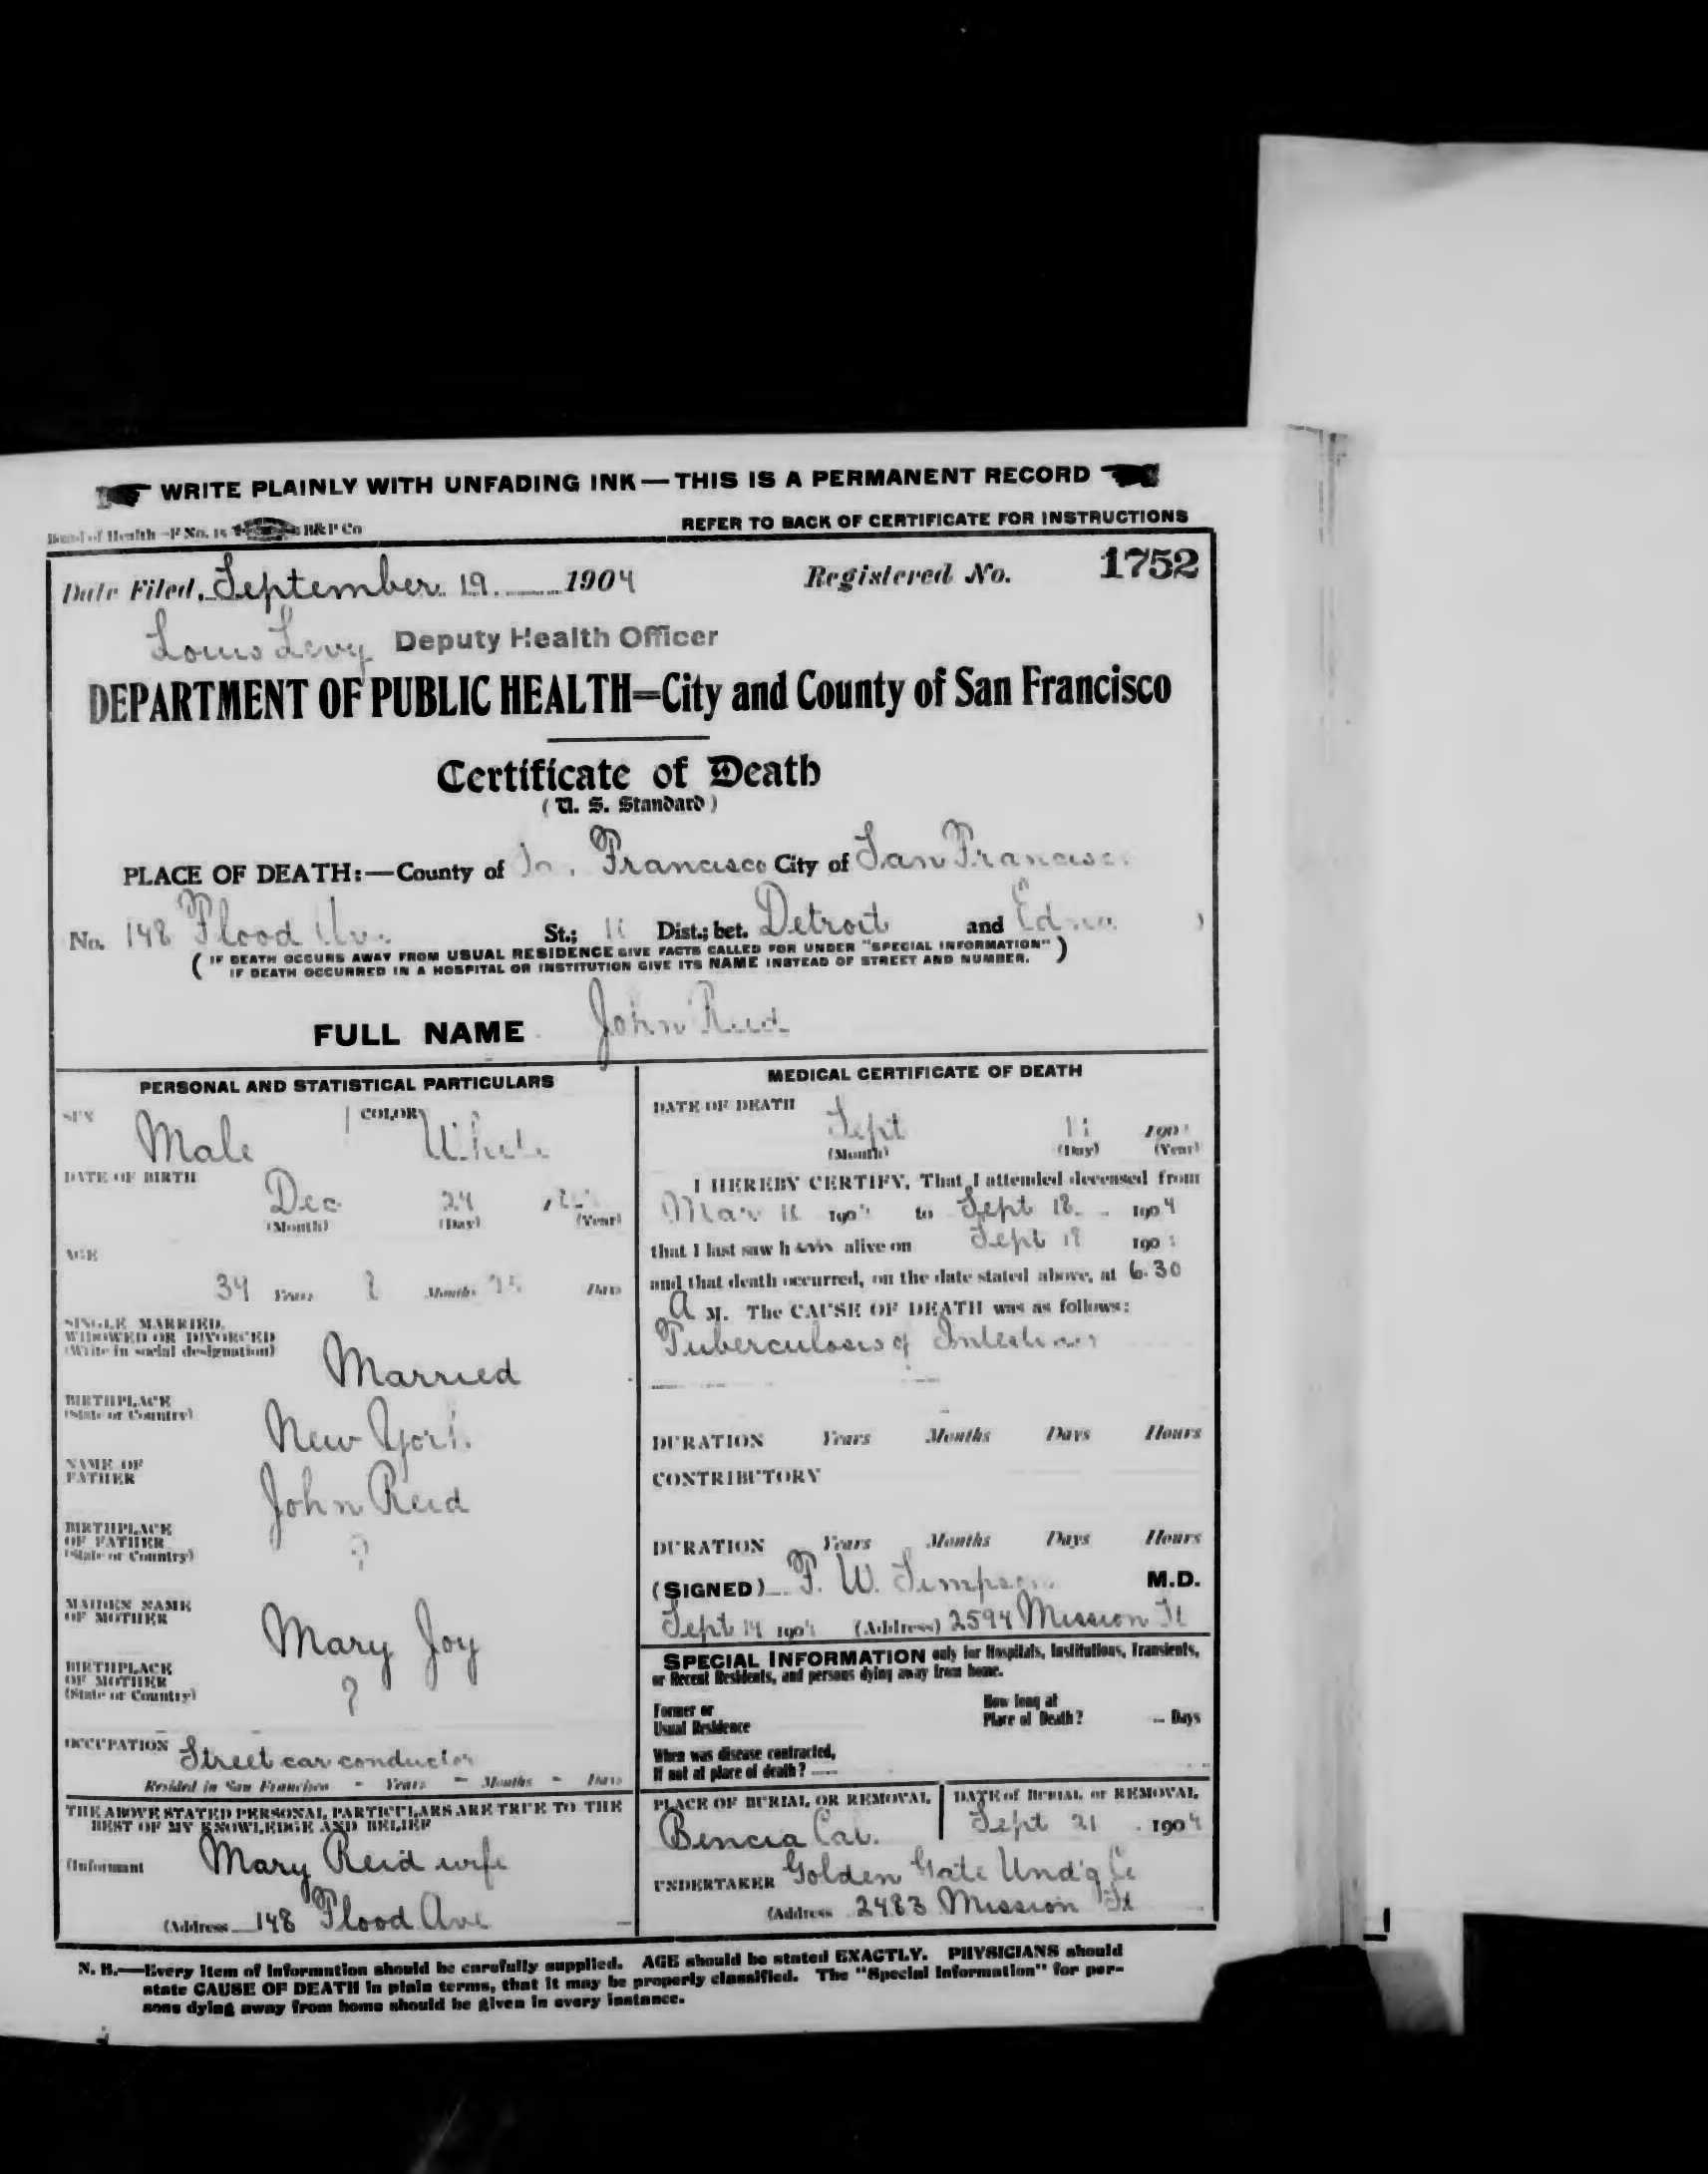 WRITE PLAINLY WITH UNFADING INK—THIS IS A PERMANENT RECORD
Board of Health—F No. 15 B&P Co
REFER TO BACK OF CERTIFICATE FOR INSTRUCTIONS
Date Filed, September 19 1904 Registered No. 1752
Louis Levy Deputy Health Officer
DEPARTMENT OF PUBLIC HEALTH=City and County of San Francisco
Certificate of Death
(U. S. Standard)
PLACE OF DEATH:—County of San Francisco City of San Francisco
No. 148 Flood Av. St.; 11 Dist.; bet. Detroit and Edna )
( IF DEATH OCCURS AWAY FROM USUAL RESIDENCE GIVE FACTS CALLED FOR UNDER "SPECIAL INFORMATION" )
IF DEATH OCCURRED IN A HOSPITAL OR INSTITUTION GIVE ITS NAME INSTEAD OF STREET AND NUMBER.
FULL NAME John Reid
PERSONAL AND STATISTICAL PARTICULARS
SEX Male COLOR White
DATE OF BIRTH
Dec 24
(Month) (Day) (Year)
AGE
34 Years 8 Months 25 Days
SINGLE, MARRIED,
WIDOWED OR DIVORCED
(Write in social designation)
Married
BIRTHPLACE
(State or Country)
New York
NAME OF
FATHER
John Reid
BIRTHPLACE
OF FATHER
(State or Country)
?
MAIDEN NAME
OF MOTHER
Mary Joy
BIRTHPLACE
OF MOTHER
(State or Country)
?
OCCUPATION Street car conductor
Resided in San Francisco - Years - Months - Days
THE ABOVE STATED PERSONAL PARTICULARS ARE TRUE TO THE
BEST OF MY KNOWLEDGE AND BELIEF
(Informant Mary Reid wife
(Address 148 Flood Ave
MEDICAL CERTIFICATE OF DEATH
DATE OF DEATH
Sept 190
(Month) (Day) (Year)
I HEREBY CERTIFY, That I attended deceased from
Mar 190 to Sept 18 1904
that I last saw him alive on Sept 190
and that death occurred, on the date stated above, at 6.30
A M. The CAUSE OF DEATH was as follows:
Tuberculosis of Intestines
DURATION Years Months Days Hours
CONTRIBUTORY
DURATION Years Months Days Hours
(SIGNED) F. W. Simpson M.D.
Sept 19 1904 (Address) 2594 Mission St
SPECIAL INFORMATION only for Hospitals, Institutions, Transients,
or Recent Residents, and persons dying away from home.
Former or
Usual Residence
How long at
Place of Death? Days
When was disease contracted,
If not at place of death?
PLACE OF BURIAL OR REMOVAL DATE of BURIAL or REMOVAL
Benicia Cal. Sept 21 1904
UNDERTAKER Golden Gate Und'g Co
(Address 2483 Mission St
N. B.—Every item of information should be carefully supplied. AGE should be stated EXACTLY. PHYSICIANS should
state CAUSE OF DEATH in plain terms, that it may be properly classified. The "Special Information" for per-
sons dying away from home should be given in every instance.